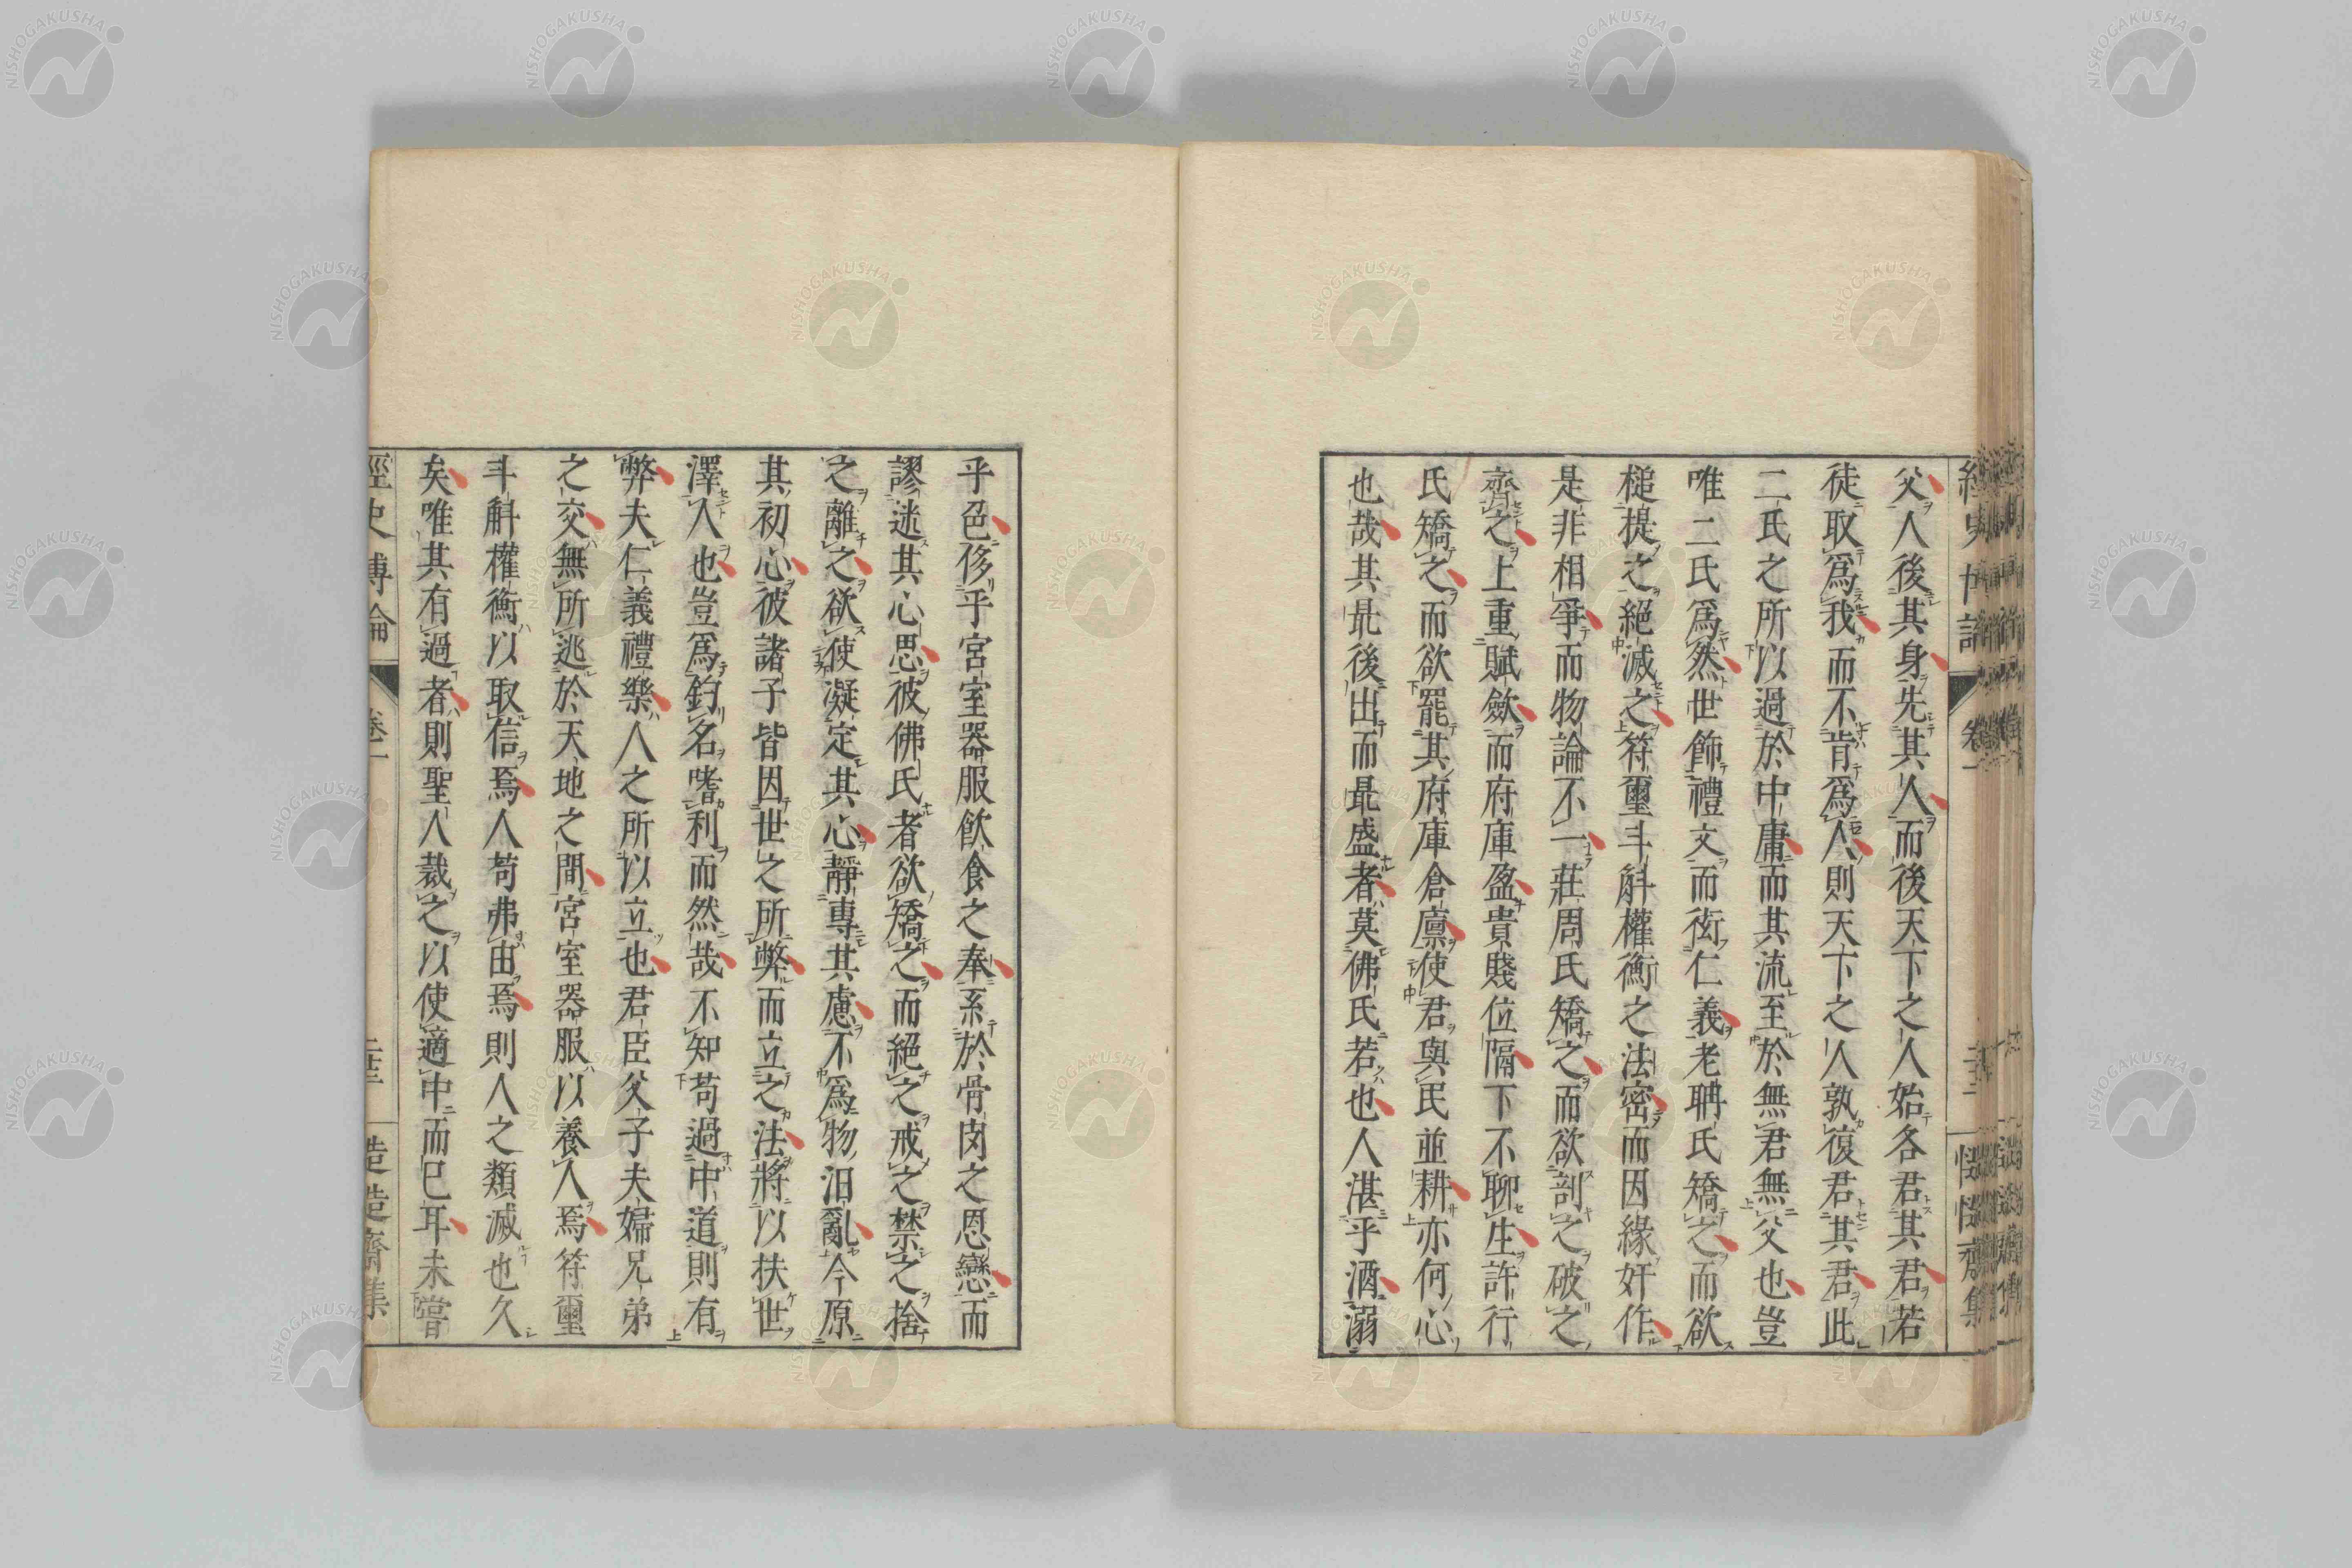 父人後其身先其人而後天下之人始各君其君若
徒取爲我而不肯爲人則天下之人孰復君其君此
二氏之所以過於中庸而其流至於無君無父也豈
唯二氏爲然世飾禮文而衒仁義老聃氏矯之而欲
槌提之絕滅之符璽斗斛權衡之法密而因緣奸作
是非相爭而物論不一莊周氏矯之而欲剖之破之
齊之上重賦斂而府庫盈貴賤位隔下不聊生許行
氏矯之而欲罷其府庫倉廩使君與民並耕亦何心
也哉其最後出而最盛者莫佛氏若也人湛乎酒溺
乎色侈乎宮室器服飮食之奉系於骨肉之恩戀而
謬迷其心思彼佛氏者欲矯之而絕之戒之禁之捨
之離之欲使凝定其心靜專其慮不爲物汨亂今原
其初心彼諸子皆因世之所弊而立之法將以扶世
澤人也豈爲釣名嗜利而然哉不知苟過中道則有
弊夫仁義禮樂人之所以立也君臣父子夫婦兄弟
之交無所逃於天地之間宮室器服以養人焉符璽
斗斛權衡以取信焉人苟弗由焉則人之類滅也久
矣唯其有過者則聖人裁之以使適中而已耳未嘗
經史博論
卷一